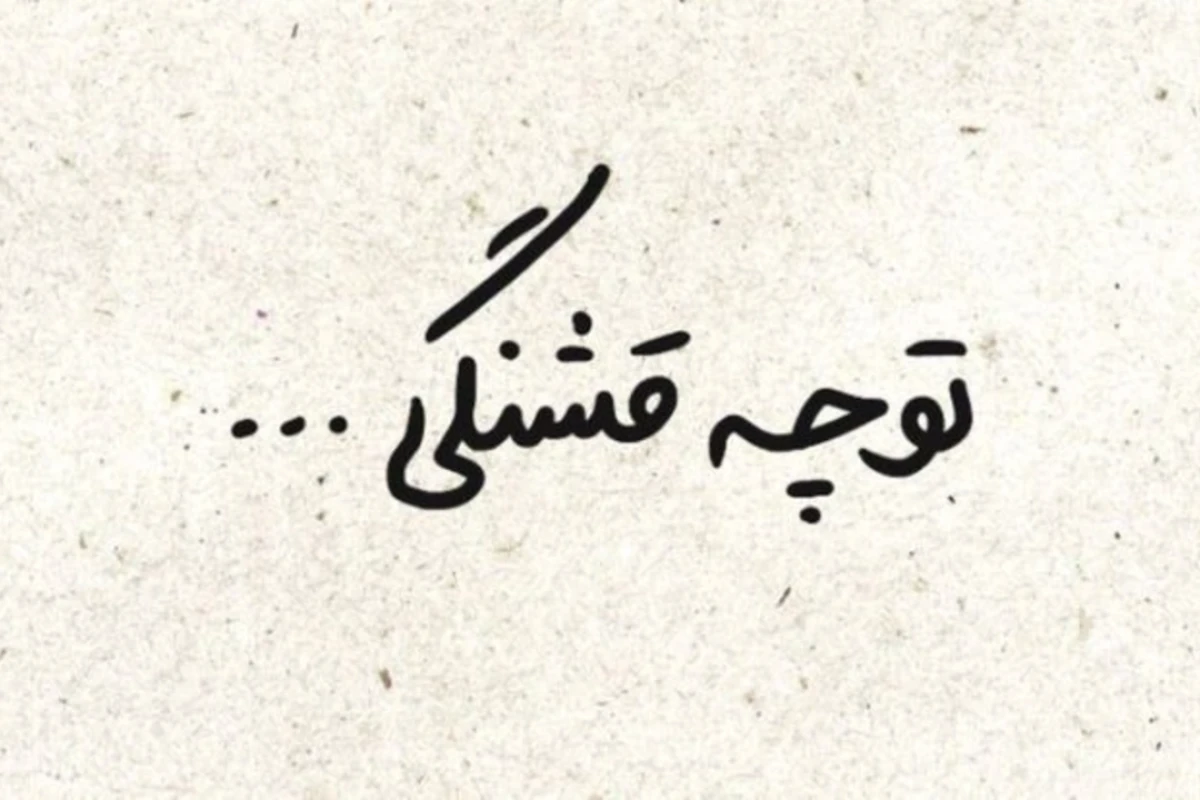 تو چه قشنگی ...